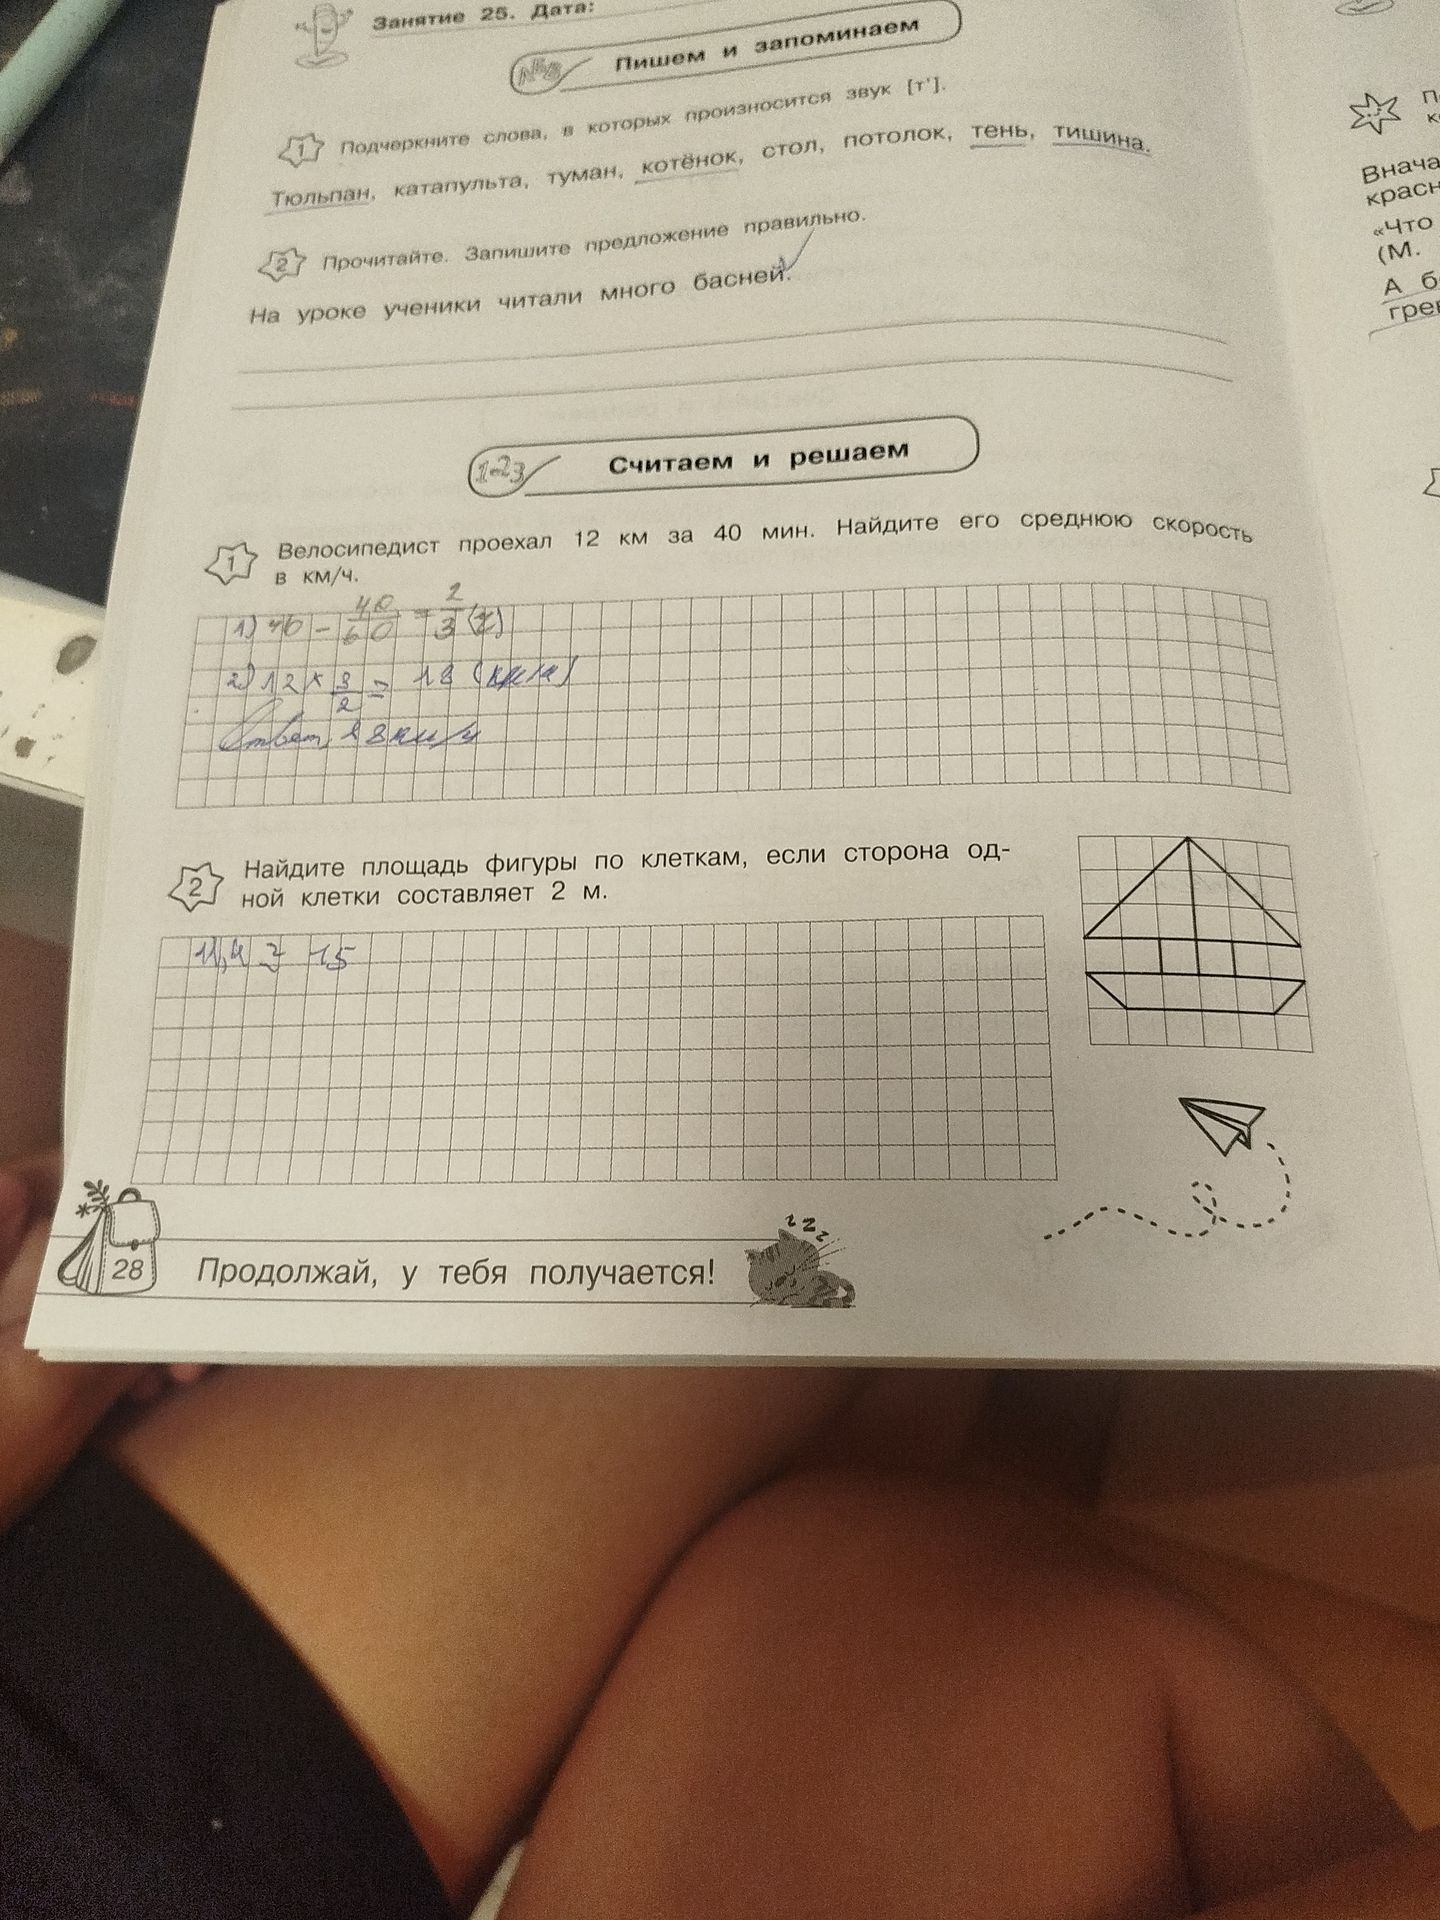 Занятие 25. Дата:
Пишем и запоминаем
1 Подчеркните слова, в которых произносится звук [т'].
Тюльпан, катапульта, туман, котёнок, стол, потолок, тень, тишина.
2 Прочитайте. Запишите предложение правильно.
На уроке ученики читали много басней.
1-2-3 Считаем и решаем
1 Велосипедист проехал 12 км за 40 мин. Найдите его среднюю скорость
в км/ч.
1) 40 - 40/60 = 2/3 (ч)
2) 12 × 3/2 = 18 (км/ч)
Ответ 18 км/ч
2 Найдите площадь фигуры по клеткам, если сторона од-
ной клетки составляет 2 м.
15
z z z
28 Продолжай, у тебя получается!
Внача
красн
«Что
(М.
А б
гре